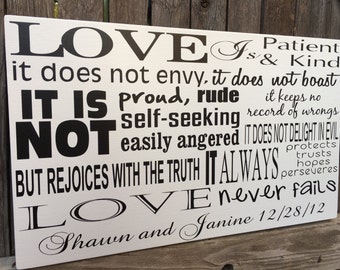 LOVE Is Patient & Kind
it does not envy, it does not boast
IT IS NOT proud, rude
self-seeking
easily angered
it keeps no
record of wrongs
IT DOES NOT DELIGHT IN EVIL
BUT REJOICES WITH THE TRUTH IT ALWAYS
protects
trusts
hopes
perseveres
LOVE never fails
Shawn and Janine 12/28/12